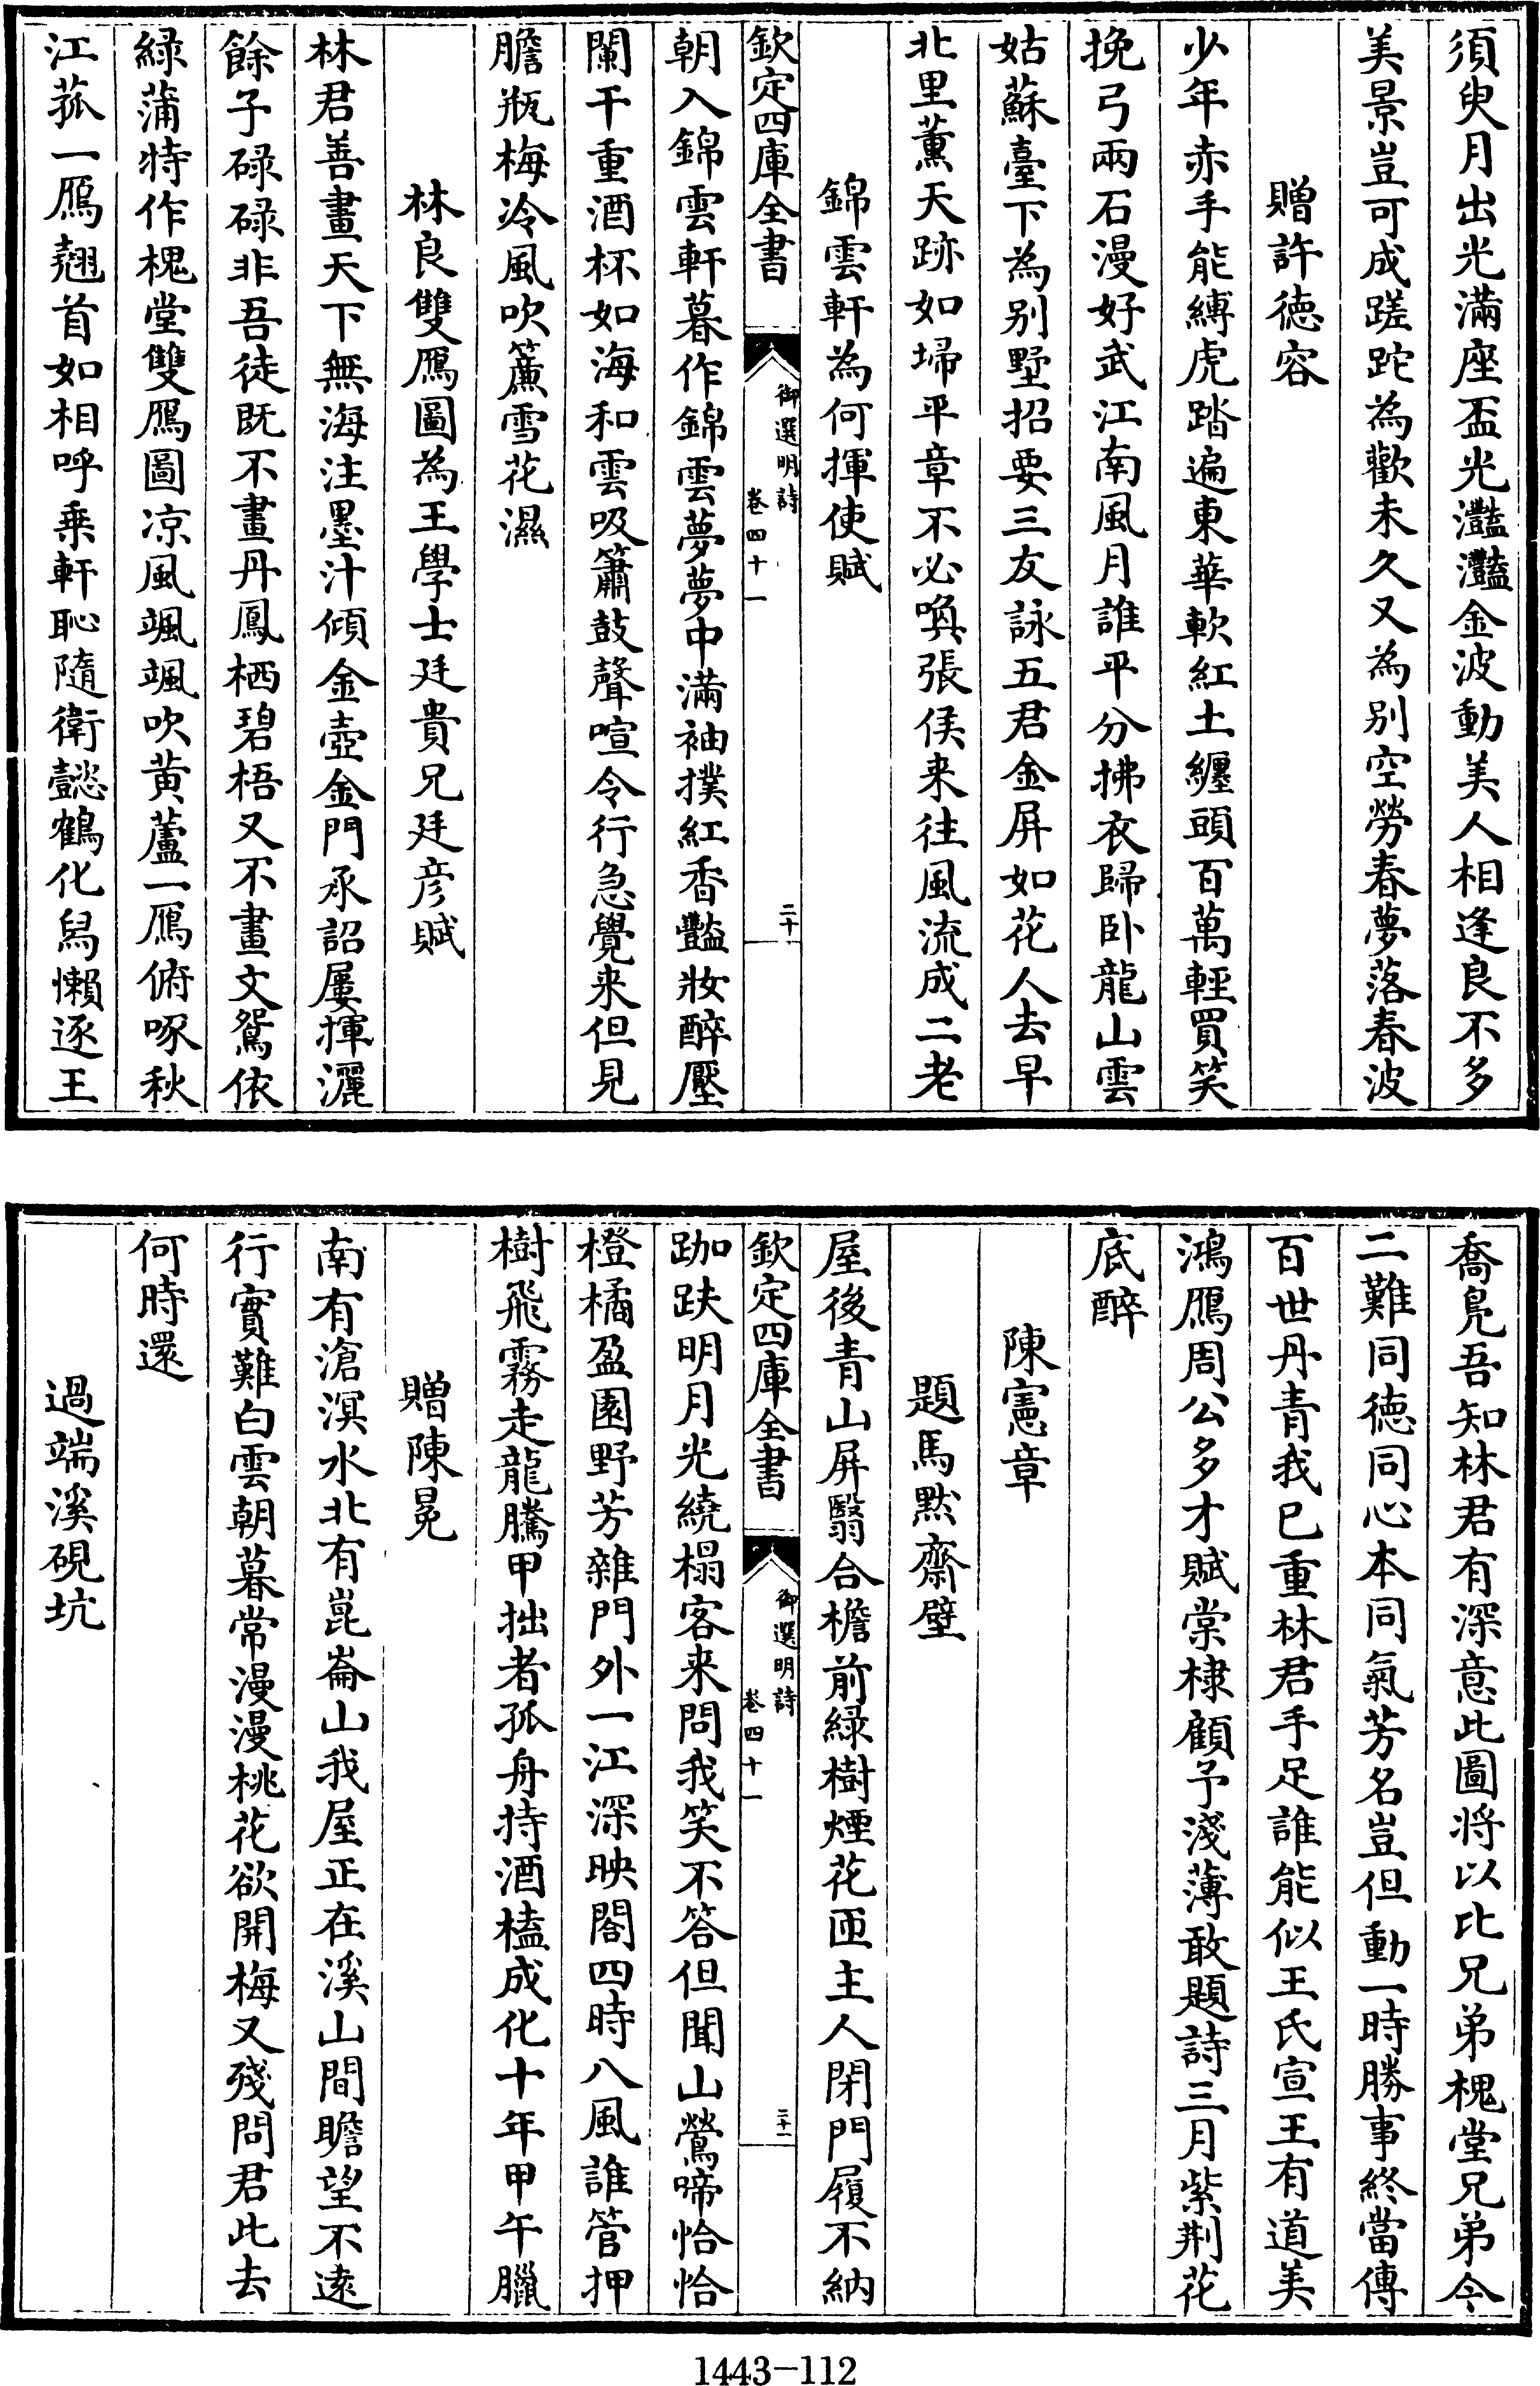 須臾月出光滿座盃光灩灩金波動美人相逢良不多
美景豈可成蹉跎為歡未久又為别空勞春夢落春波
贈許德容
少年赤手能縛虎踏遍東華軟紅土纏頭百萬輕買笑
挽弓兩石漫好武江南風月誰平分拂衣歸卧龍山雲
姑蘇臺下為别墅招要三友詠五君金屏如花人去早
北里薰天跡如埽平章不必喚張侯来往風流成二老
錦雲軒為何揮使賦
欽定四庫全書
御選明詩
卷四十一
二十
朝入錦雲軒暮作錦雲夢夢中滿袖撲紅香豔妝醉壓
闌干重酒杯如海和雲吸簫鼓聲喧令行急覺来但見
膽瓶梅冷風吹簾雪花濕
林良雙鴈圖為王學士廷貴兄廷彦賦
林君善畫天下無海注墨汁傾金壺金門承詔屢揮灑
餘子碌碌非吾徒既不畫丹鳳栖碧梧又不畫文鴛依
緑蒲特作槐堂雙鴈圖凉風颯颯吹黄蘆一鴈俯啄秋
江菰一鴈翹首如相呼乗軒恥隨衛懿鶴化舄懶逐王
喬鳧吾知林君有深意此圖将以比兄弟槐堂兄弟今
二難同德同心本同氣芳名豈但動一時勝事終當傳
百世丹青我已重林君手足誰能似王氏宣王有道美
鴻鴈周公多才賦棠棣顧予淺薄敢題詩三月紫荆花
底醉
陳憲章
題馬默齋壁
屋後青山屏翳合檐前緑樹煙花匝主人閉門履不納
欽定四庫全書
御選明詩
卷四十一
二十一
跏趺明月光繞榻客来問我笑不答但聞山鶯啼恰恰
橙橘盈園野芳雜門外一江深映閣四時八風誰管押
樹飛霧走龍騰甲拙者孤舟持酒榼成化十年甲午臘
贈陳冕
南有滄溟水北有崑崙山我屋正在溪山間瞻望不遠
行實難白雲朝暮常漫漫桃花欲開梅又殘問君此去
何時還
過端溪硯坑
1443-112